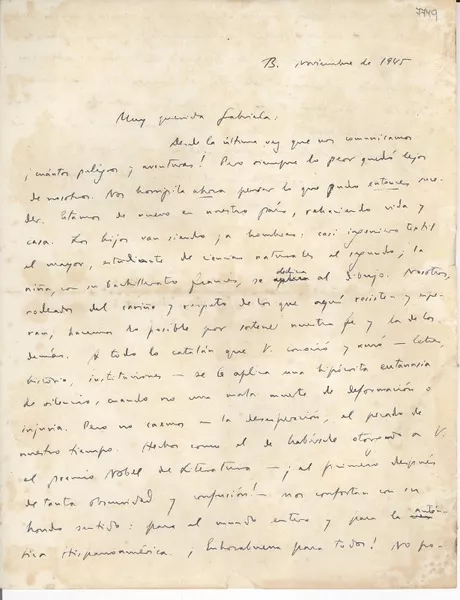 7749
B. noviembre de 1945
Muy querida Gabriela:
Desde la última vez que nos comunicamos
¡cuántos peligros y aventuras! Pero siempre lo peor quedó lejos
de nosotros. Nos horripila ahora pensar lo que pudo entonces suce-
der. Estamos de nuevo en nuestro país, rehaciendo vida y
casa. Los hijos van siendo ya hombres: casi ingeniero textil
el mayor, estudiante de ciencias naturales el segundo; la
niña, con su bachillerato francés, se dedica al dibujo. Nosotros,
rodeados del cariño y respeto de los que aquí resisten y espe-
ran, hacemos lo posible por sostener nuestra fe y la de los
demás. A todo lo catalán que V. conoció y amó — letras,
historia, instituciones — se le aplica una hipócrita eutanasia
de silencio, cuando no una mala muerte de deformación o
injuria. Pero no caemos en la desesperación, el pecado de
nuestro tiempo. Hechos como el de habérsele otorgado a V.
el premio Nobel de Literatura — ¡el primero después
de tanta obscuridad y confusión! — nos confortan con su
hondo sentido: para el mundo entero y para la autén-
tica Hispanoamérica. ¡Enhorabuena para todos! No po-